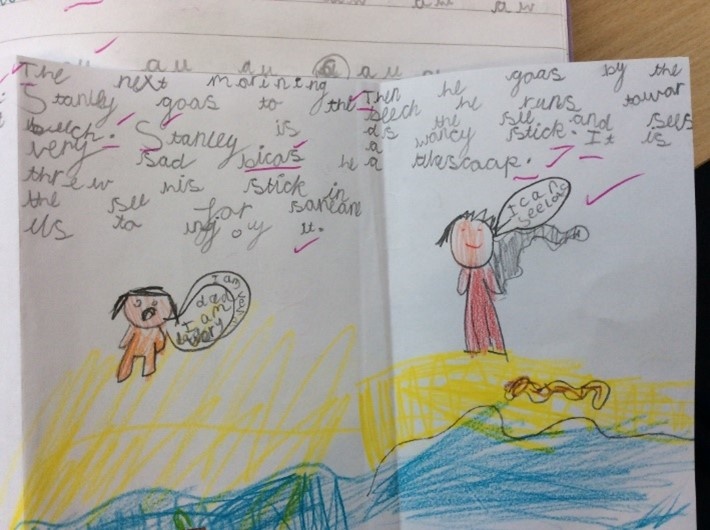 au au a au
aw aw
The next morining
Stanley goas to the
beech. Stanley is
very sad bicas he
threw his stick in
the see for sameone
els to injoy it.
Then he goas by the
beech he runs towar
ds the see and sees
a wancy stick. It is
a tilescaap.
I am
dad
I am
I can
see land